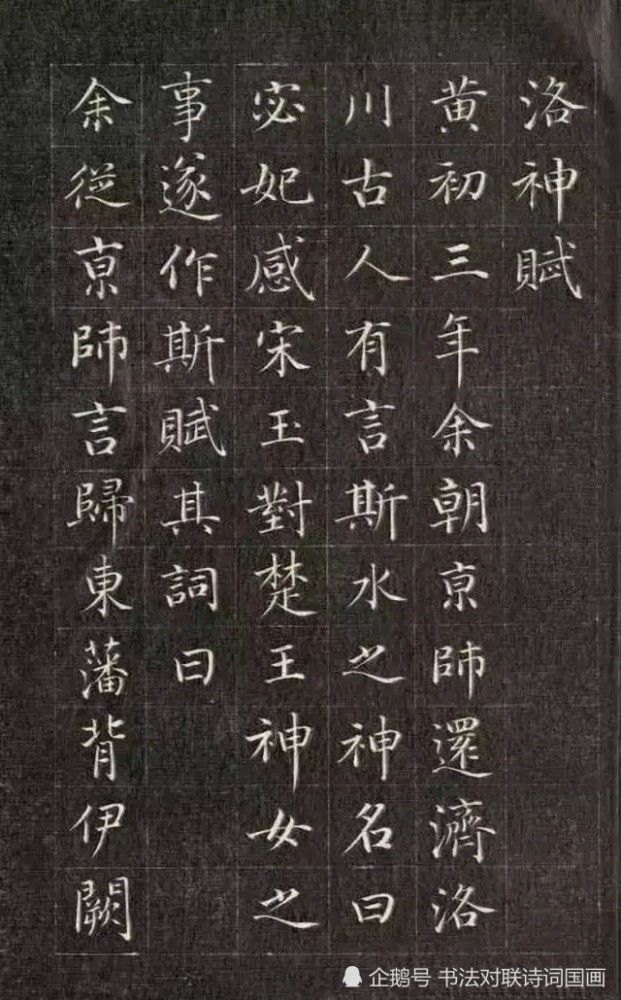 洛神賦
黄初三年余朝京師還濟洛
川古人有言斯水之神名曰
宓妃感宋玉對楚王神女之
事遂作斯賦其詞曰
余從京師言歸東藩背伊闕
企鹅号 书法对联诗词国画